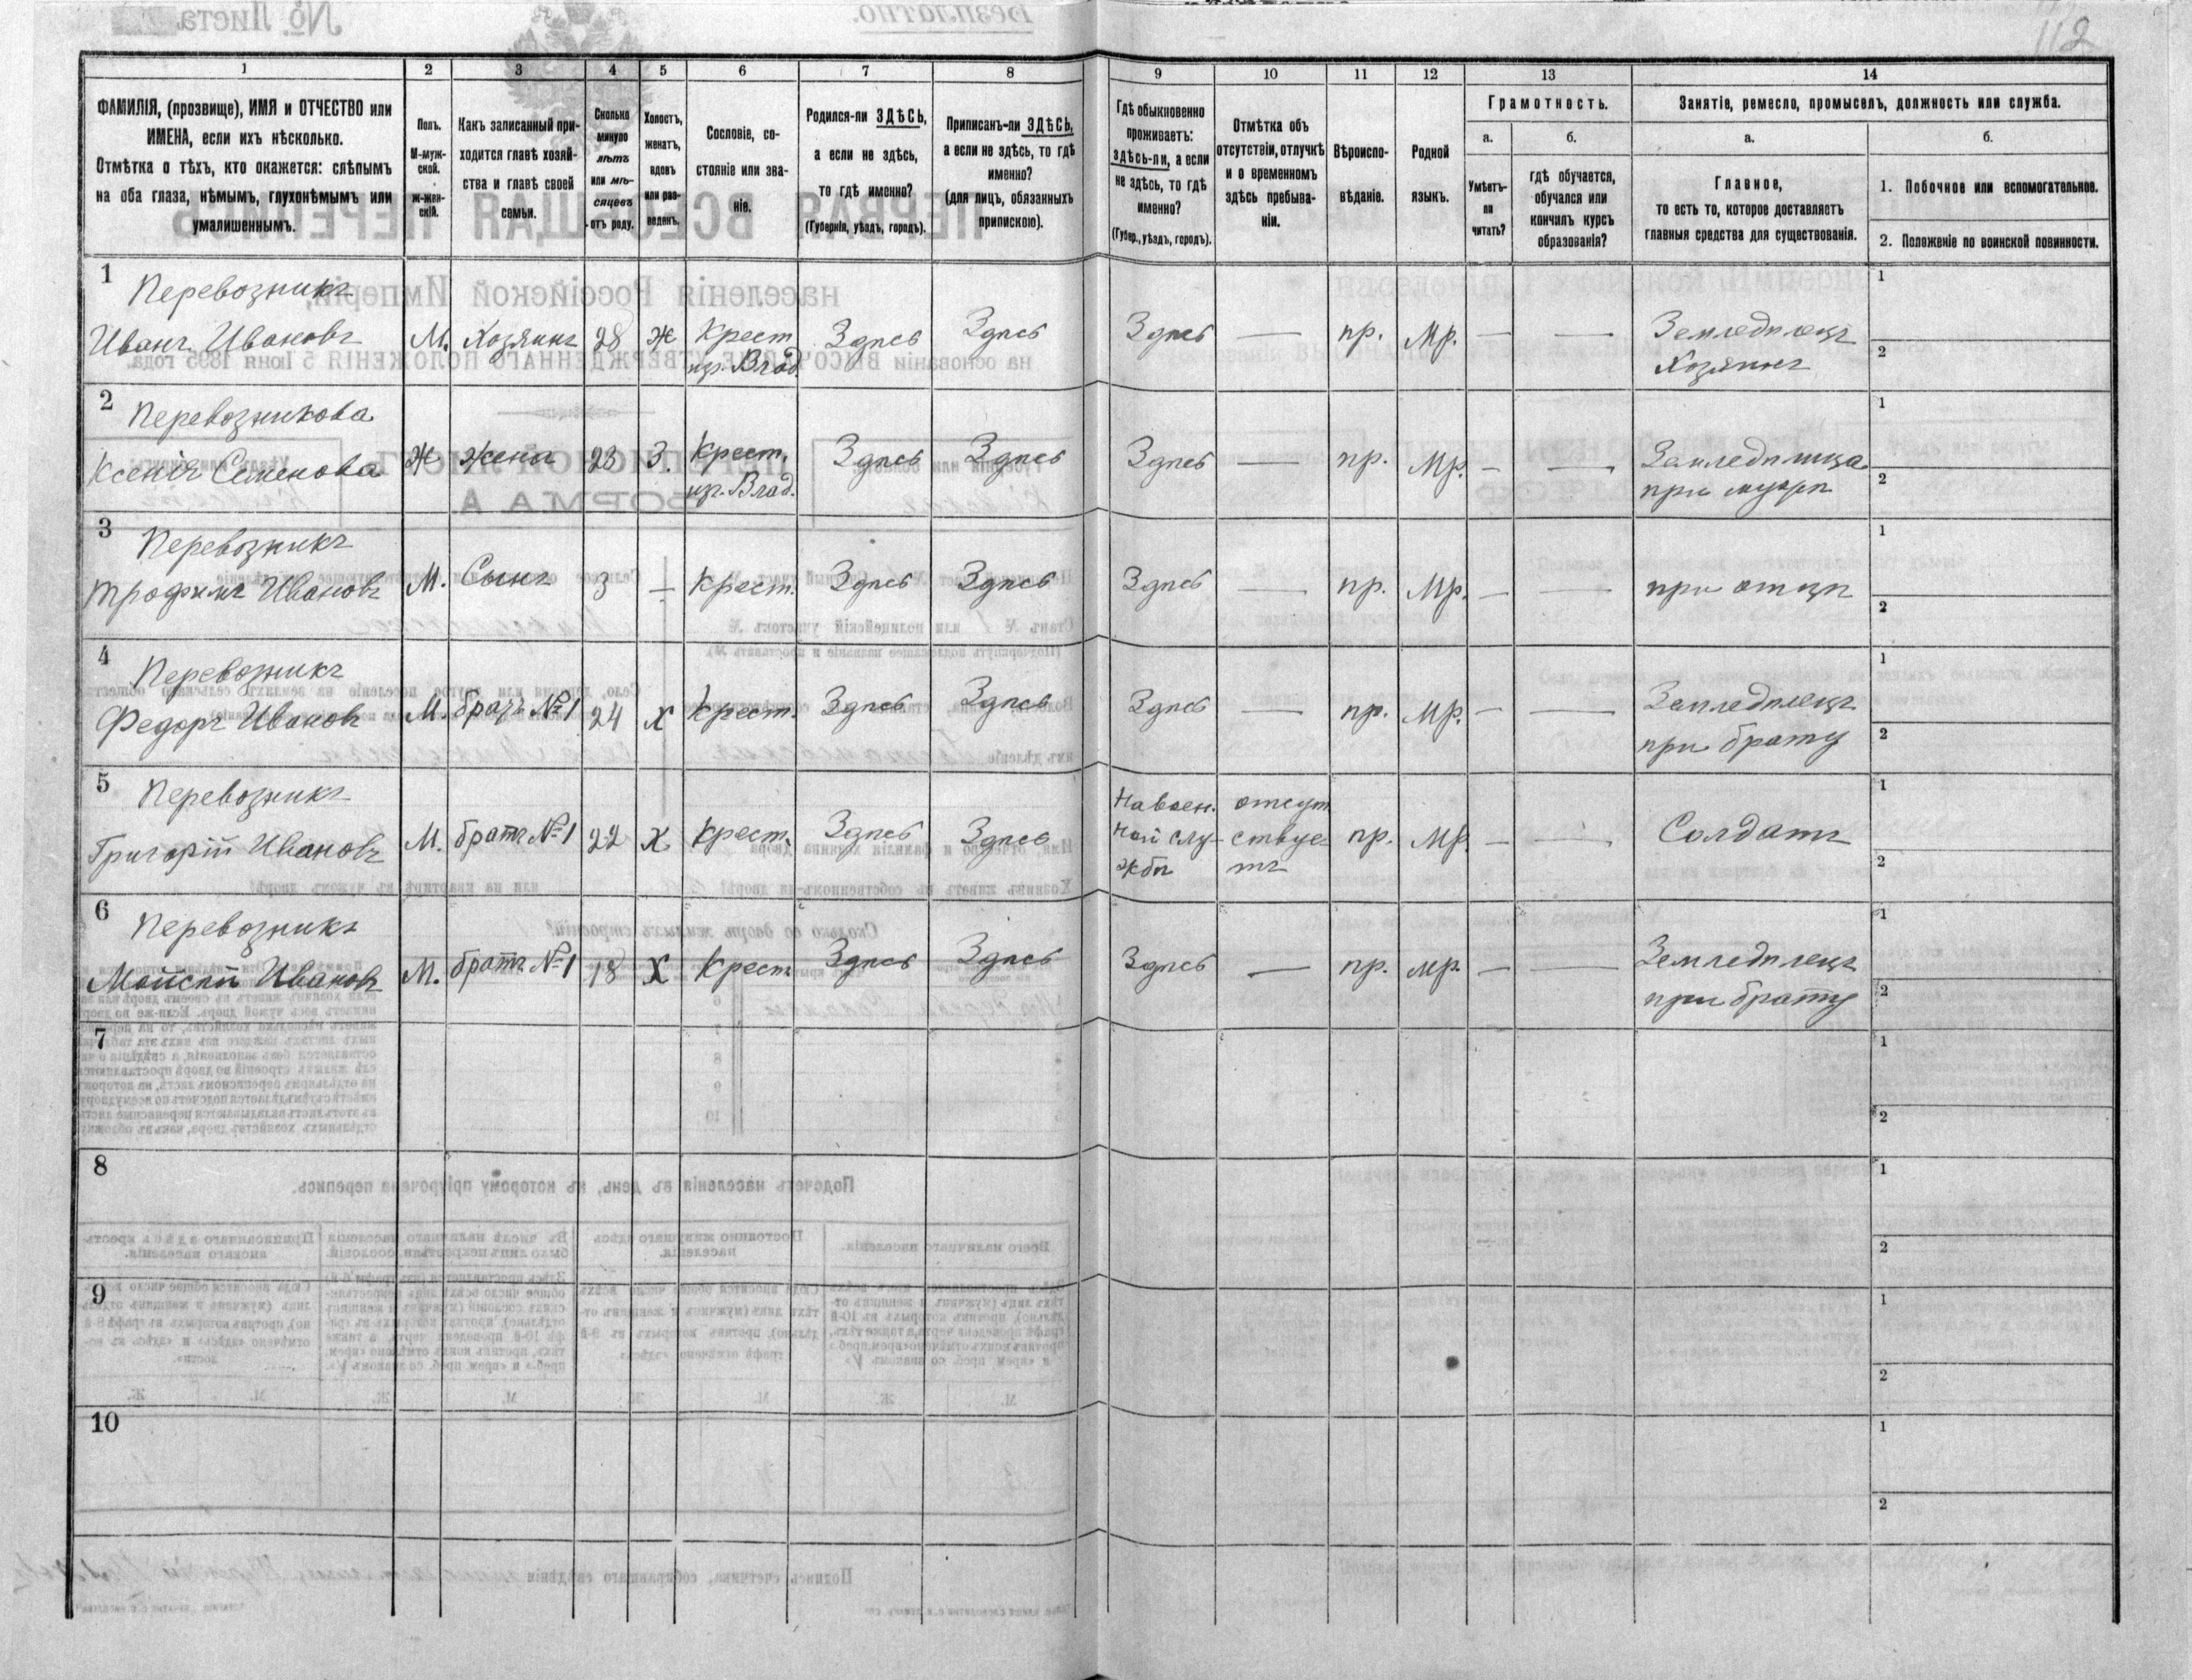 112
1 2 3 4 5 6 7 8 9 10 11 12 13 14
ФАМИЛІЯ, (прозвище), ИМЯ и ОТЧЕСТВО или
ИМЕНА, если ихъ нѣсколько.
Отмѣтка о тѣхъ, кто окажется: слѣпымъ
на оба глаза, нѣмымъ, глухонѣмымъ или
умалишеннымъ.
Полъ.
М-муж-
ской.
ж-жен-
скій.
Какъ записанный при-
ходится главѣ хозяй-
ства и главѣ своей
семьи.
Сколько
минуло
лѣтъ
или мѣ-
сяцевъ
отъ роду.
Холостъ,
женатъ,
вдовъ
или раз-
веденъ.
Сословіе, со-
стояніе или зва-
ніе.
Родился-ли ЗДѢСЬ,
а если не здѣсь,
то гдѣ именно?
(Губернія, уѣздъ, городъ).
Приписанъ-ли ЗДѢСЬ,
а если не здѣсь, то гдѣ
именно?
(для лицъ, обязанныхъ
припискою).
Гдѣ обыкновенно
проживаетъ:
здѣсь-ли, а если
не здѣсь, то гдѣ
именно?
(Губер., уѣздъ, городъ).
Отмѣтка объ
отсутствіи, отлучкѣ
и о временномъ
здѣсь пребыва-
ніи.
Вѣроиспо-
вѣданіе.
Родной
языкъ.
Грамотность.
а.
Умѣетъ-
ли
читать?
б.
гдѣ обучается,
обучался или
кончилъ курсъ
образованія?
Занятіе, ремесло, промыселъ, должность или служба.
а.
Главное,
то есть то, которое доставляетъ
главныя средства для существованія.
б.
1. Побочное или вспомогательное.
2. Положеніе по воинской повинности.
1
Перевозникъ
Иванъ Ивановъ М. Хозяинъ 28 Ж Крест. Здѣсь Здѣсь Здѣсь — пр. Мр. — — Земледѣлецъ 1
из. Влад. Хозяинъ 2
2
Перевозникова
Ксенія Семенова Ж жена 23 З. Крест. Здѣсь Здѣсь Здѣсь — пр. Мр. — — Земледѣлица 1
из. Влад. при мужѣ 2
3
Перевозникъ
Трофимъ Ивановъ М. Сынъ 3 — Крест. Здѣсь Здѣсь Здѣсь — пр. Мр. — — при отцѣ 1
2
4
Перевозникъ
Федоръ Ивановъ М. братъ №1 24 Х Крест. Здѣсь Здѣсь Здѣсь — пр. Мр. — — Земледѣлецъ 1
при брату 2
5
Перевозникъ На воен- отсут 1
Григорій Ивановъ М. братъ №1 22 Х Крест. Здѣсь Здѣсь ной слу- ствуе- пр. Мр. — — Солдатъ
жбѣ тъ 2
6
Перевозникъ
Мойсей Ивановъ М. братъ №1 18 Х Крест. Здѣсь Здѣсь Здѣсь — пр. мр. — — Земледѣлецъ 1
при брату 2
7 1
2
8 1
2
9 1
2
10 1
2